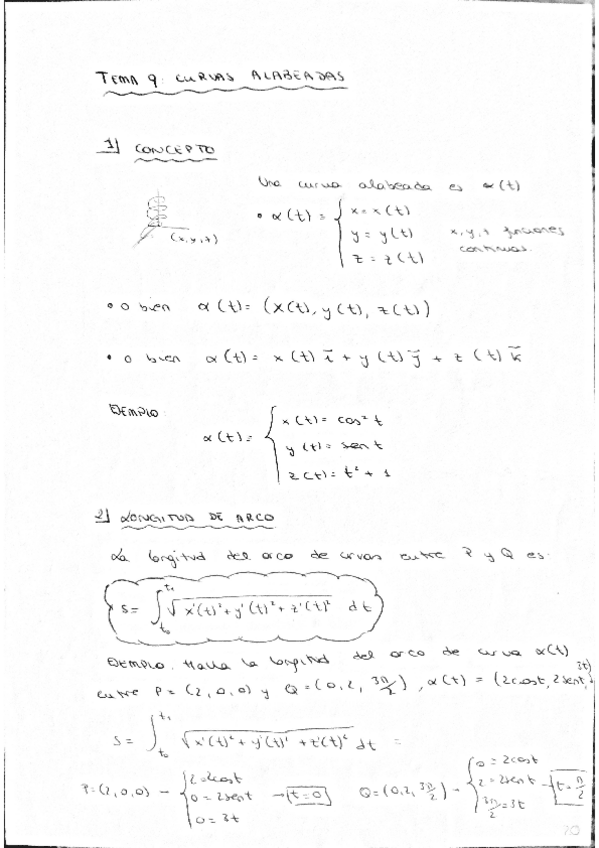 TEMA 9: CURVAS ALABEADAS
1) CONCEPTO
Una curva alabeada es α(t)
(x,y,z)
• α(t) = { x = x(t)
y = y(t)
z = z(t)
x, y, z funciones
continuas.
• o bien α(t) = (x(t), y(t), z(t))
• o bien α(t) = x(t) i + y(t) j + z(t) k
EJEMPLO:
α(t) = { x(t) = cos² t
y(t) = sen t
z(t) = t² + 1
2) LONGITUD DE ARCO
La longitud del arco de curvas entre P y Q es:
S = ∫_{t₀}^{t₁} √(x'(t)² + y'(t)² + z'(t)²) dt
EJEMPLO: Halla la longitud del arco de curva α(t)
entre P = (2, 0, 0) y Q = (0, 2, 3π/2), α(t) = (2cost, 2sent, 3t)
S = ∫_{t₀}^{t₁} √(x'(t)² + y'(t)² + z'(t)²) dt =
P = (2, 0, 0) → { 2 = 2cost
0 = 2sent → t = 0
0 = 3t
Q = (0, 2, 3π/2) → { 0 = 2cost
2 = 2sent → t = π/2
3π/2 = 3t